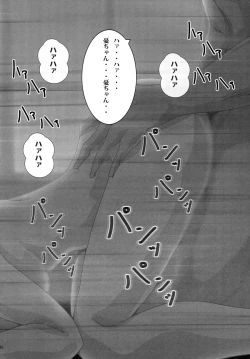 ハァハァ
ハァ・・ハァ・・・・
優ちゃん・・・優ちゃん・・
ハァハァ
ハァハァ
ハァ
ハァ
ハァ
ハァ
パンッ
パンッ
パンッ
パンッ
パンッ
パンッ